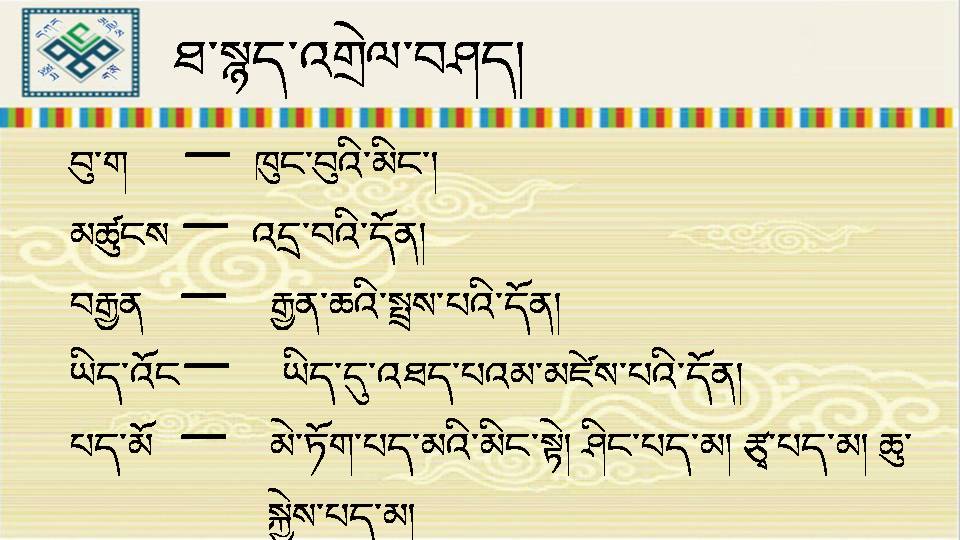 ཐ་སྙད་འགྲེལ་བཤད།
བུ་ག — ཁུང་བུའི་མིང་།
མཚུངས — འདྲ་བའི་དོན།
བརྒྱན — རྒྱན་ཆའི་སྤྲས་པའི་དོན།
ཡིད་འོང — ཡིད་དུ་འཐད་པའམ་མཛེས་པའི་དོན།
པད་མོ — མེ་ཏོག་པད་མའི་མིང་སྟེ། ཤིང་པད་མ། རྩྭ་པད་མ། ཆུ་
སྐྱེས་པད་མ།